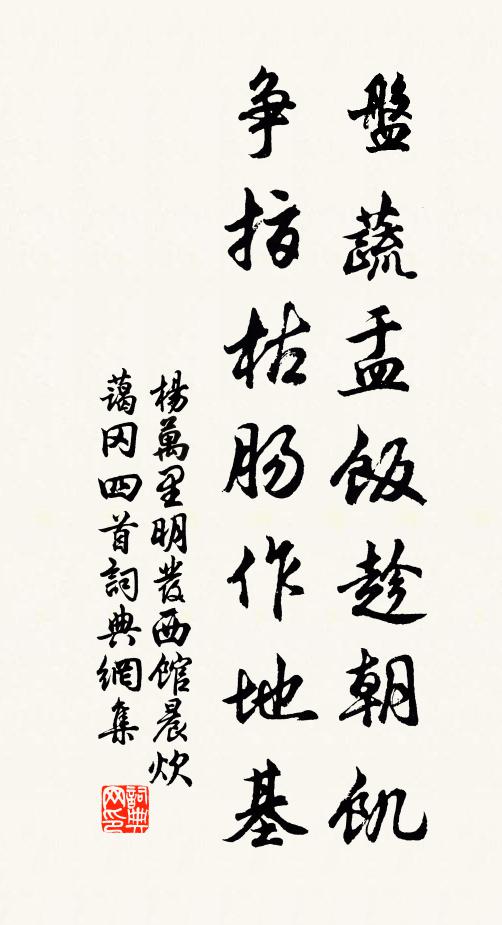 盤蔬盂飯趁朝飢
争挡枯肠作地基
楊萬里明發西館晨炊
藹冈四首詞典網集
詞典网印